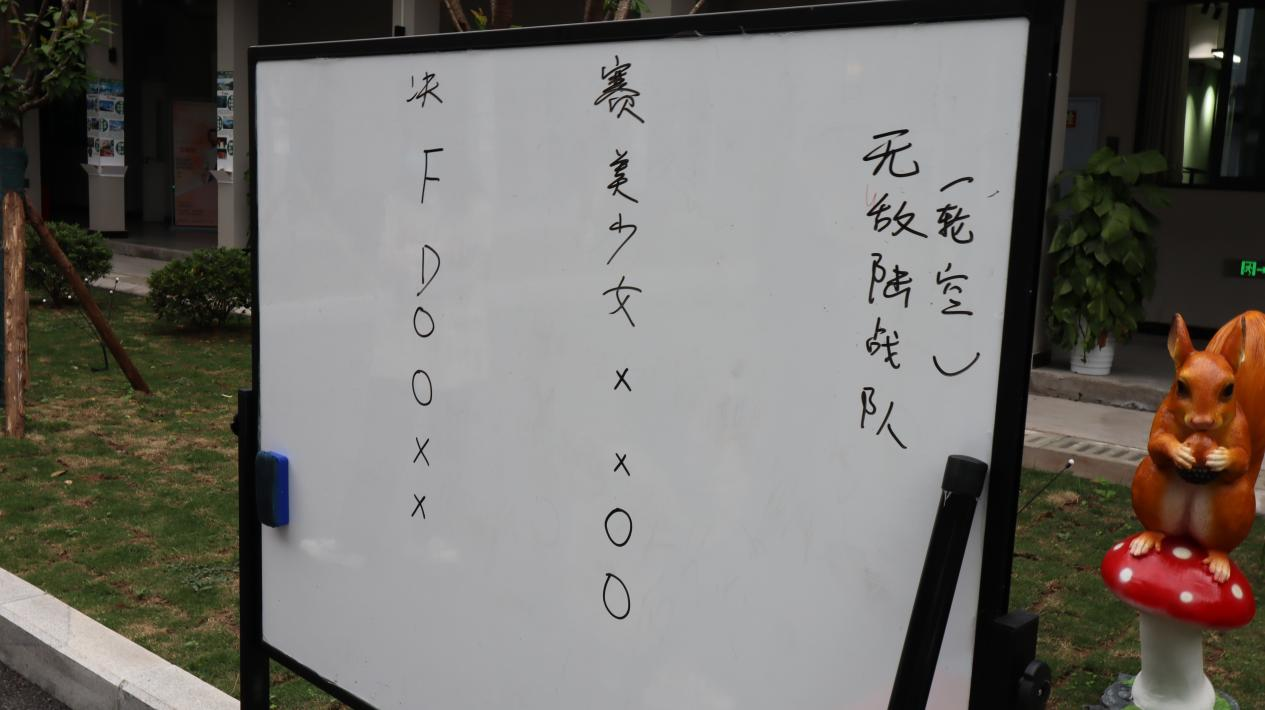 决 赛
FD OOXX
美少女 XXOO
无敌陆战队
(轮空)